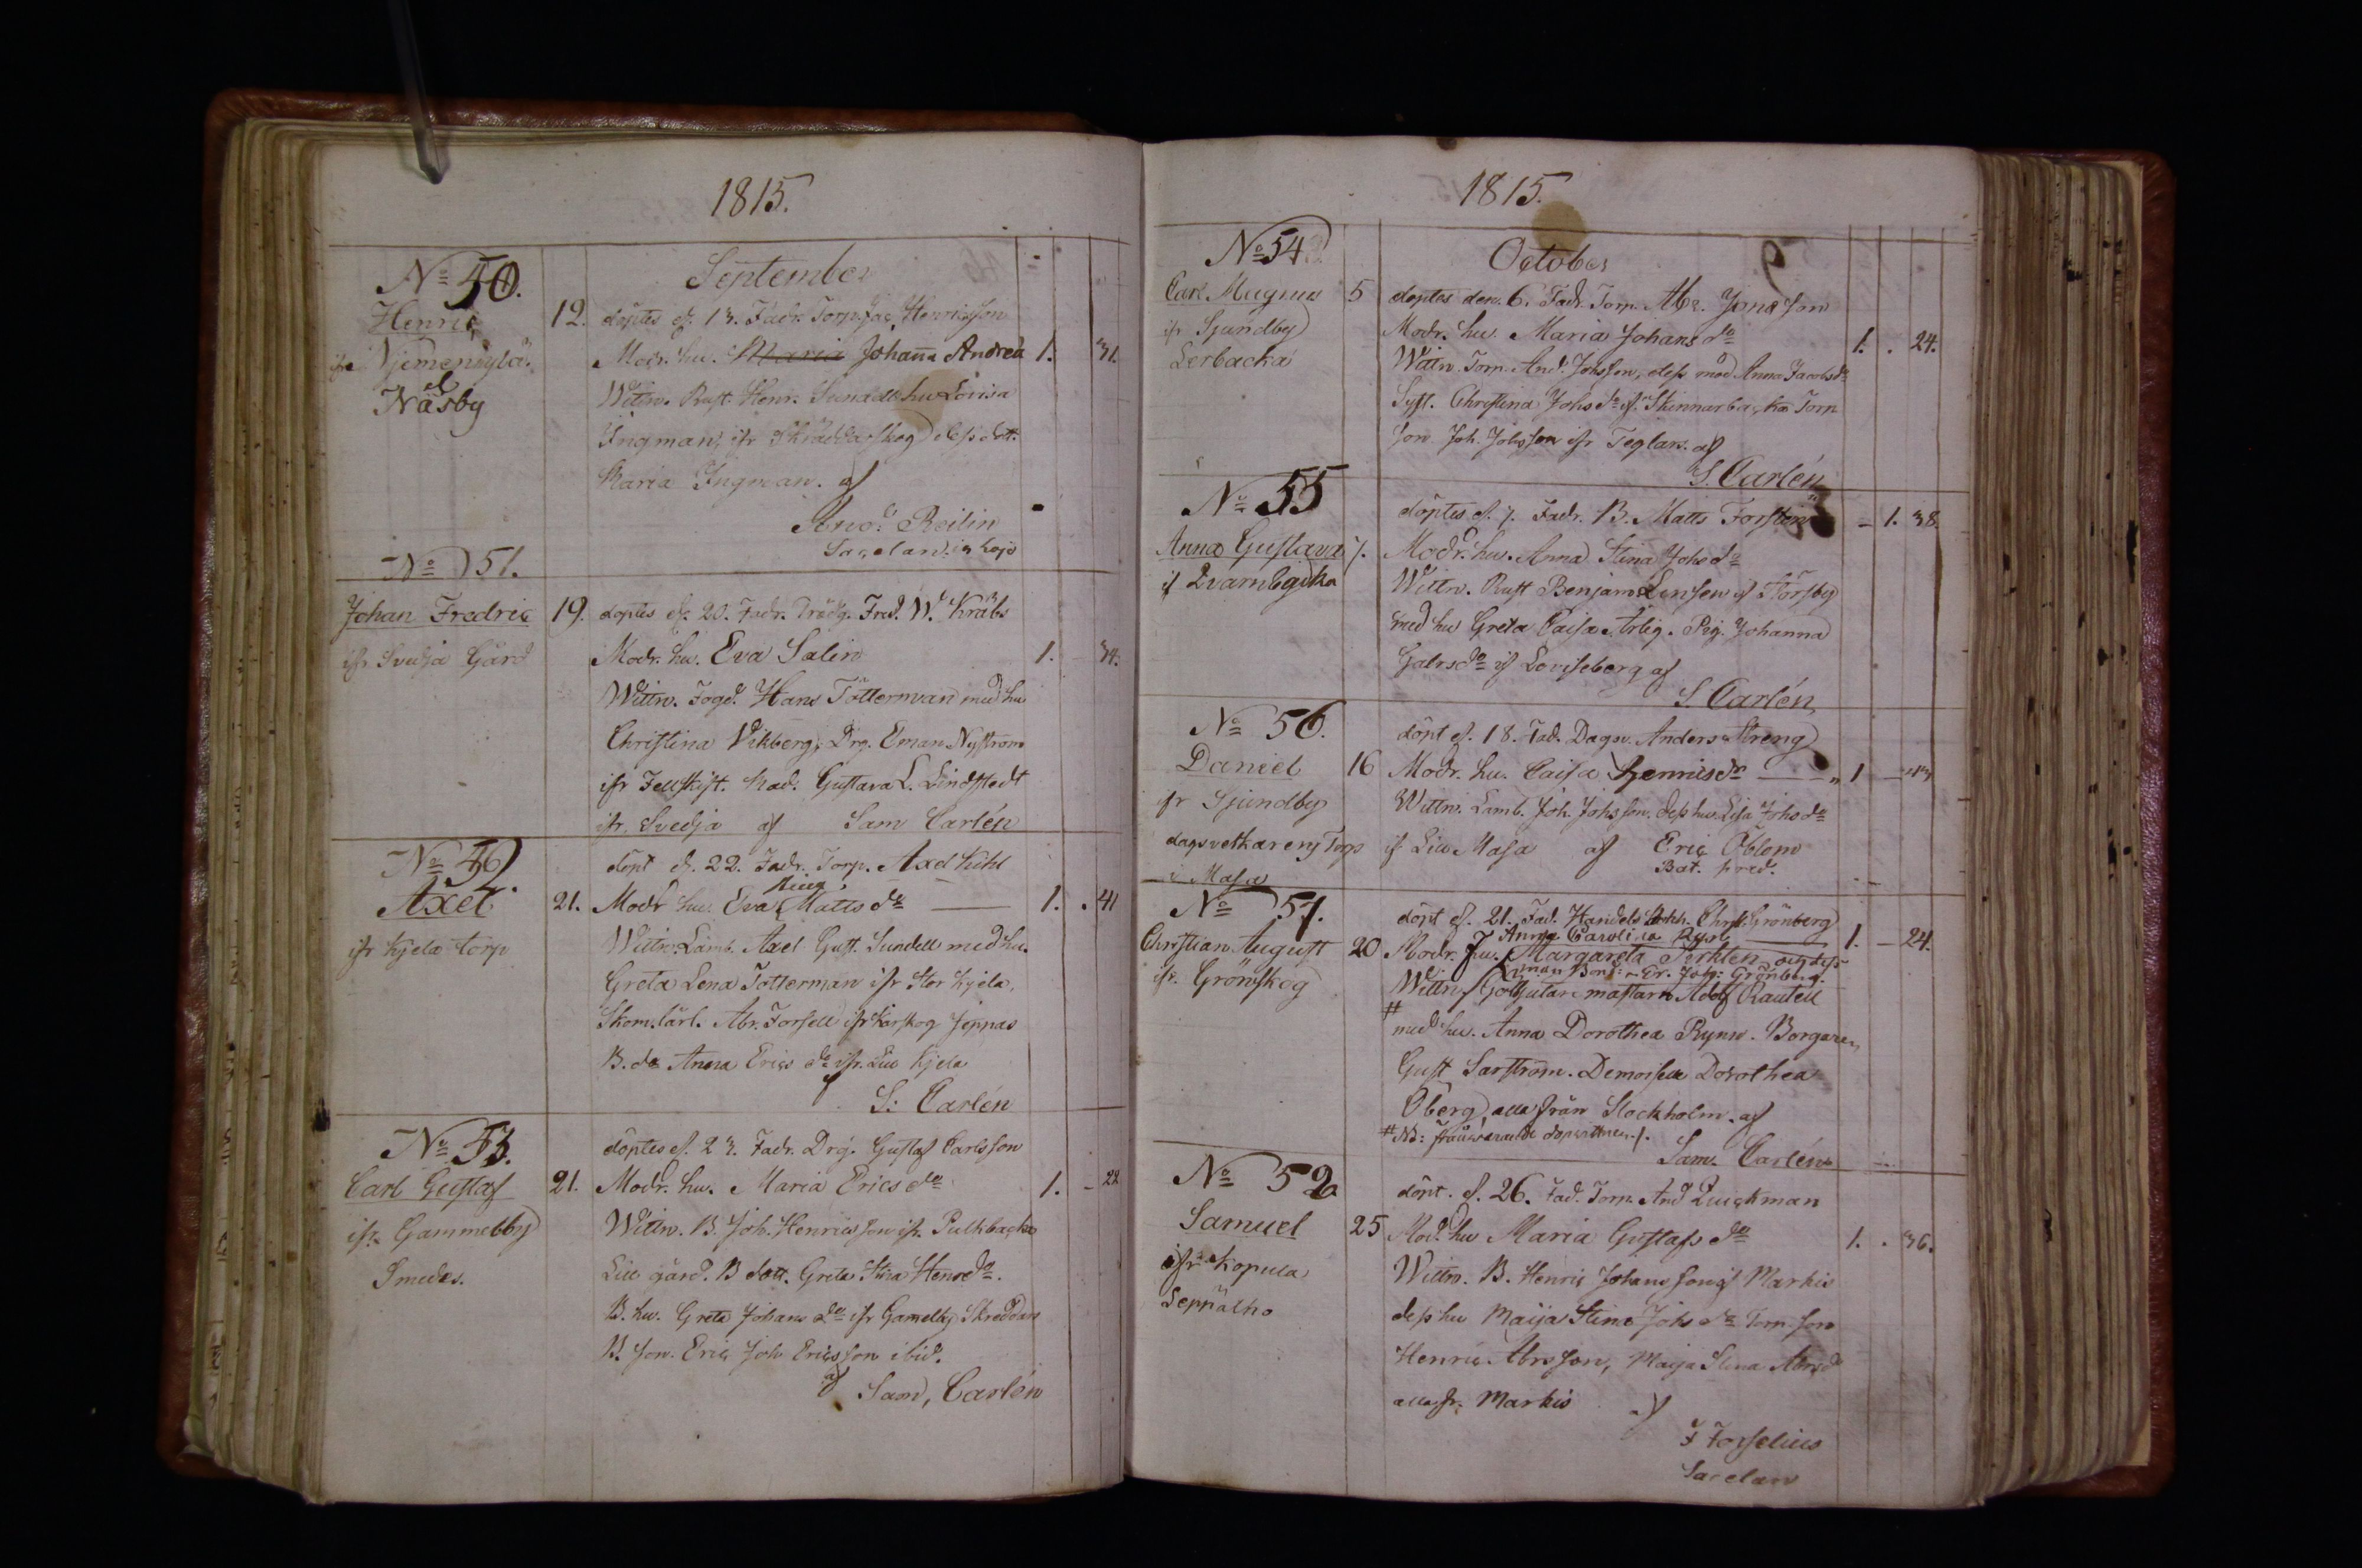 1815.
September
No 50.
Henric
ifr Njemenkylä
el
Näsby
12. döptes d. 13. Fadr. Torp. Jac. Henricsson
Modr. hu. Maria Johanna Andreæ 1. 31.
Wittn. Rust. Henr. Sundell hu Lovisa
Ingman, ifr Skräddarskog dess dott.
Maria Ingman. af
Arvd. Reilin
Sacellan. in Lojo
No 51.
Johan Fredric
ifr Svidja Gård
19. döptes d. 20. Fadr. Trädg. Fred. W. Kräbs
Modr. hu. Eva Salin 1. 34.
Wittn. Fogd. Hans Totterman med hu
Christina Vikberg, Drg. Eman. Nyström
ifr Fellskift. Mad. Gustava L. Lindstedt
ifr. Svedja af Sam Carlén
No 52.
Axel
ifr Kjela torp
dopt d. 22. Fadr. Torp. Axel Kihl
21. Modr hu. Eva Stina Matts dr 1. . 41
Wittn. Lamb. Axel Gust. Sundell med hu.
Greta Lena Totterman ifr Stor Kjela,
Skom.lärl. Abr. Forsell ifr Karskog Jeppas
B. dr Anna Erics dr ifr. Lill Kjela
af
S: Carlén
No 53.
Carl Gustaf
ifr Gammelby
Smedas.
döptes d. 23. Fadr. Drg. Gustaf Carlsson
21. Modr. hu. Maria Erics dr 1. - 22
Wittn. B. Joh. Henricsson ifr. Pulkbacka
Lill gård. B dott. Greta Stina Henr dr.
B. hu. Greta Johans dr ifr Gamelby Skreddars
B. son. Eric Joh Ericsson ibid.
af Sam, Carlén
1815.
October
No 54
Carl Magnus
ifr Sjundby
Lerbacka
5 doptes den 6. Fadr. Torp. Abr. Jonasson
Modr. hu. Maria Johans dr 1. . 24.
Wittn. Torp. And. Johsson, dess mod Anna Jacobsdr
Syst. Christina Johs dr if. Skinnarbacka Torp
son Joh. Johsson ifr Teglars. af
S. Carlén
No 55
Anna Gustava
if Qvarnbacka
döptes d. 7. Fadr. B. Matts Forsten - 1. 38.
7. Modr. hu. Anna Stina Johs dr
Wittn. Rust Benjam Lensen if Störsby
med hu Greta Caisa Arlig. Pig. Johanna
Gabrs dr if Lovisseberg af
S. Carlén
No 56.
Daniel
ifr Sjundby
dagsvetkareng Torp
i Masa
dopt d. 18. Fad. Dagsv. Anders Streng
16 Modr. hu. Caisa Henrics dr 1
Wittn. Lamb. Joh. Johsson. dess hu. Lisa Johs dr
if Lill Masa af Eric Öblom
Bat. pred.
No 57.
Christian August
ifr. Grönskog
dopt d. 21. Fad. Handels Christ. Grönberg
Anna Carolina
20 Modr. Fru. Margareta 1. - 24.
Joh: Grönberg.
Wittn. mästarn Adolf Rautell
#
med hu. Anna Dorothea Rynn. Borgaren
Gust Sarström. Demoiselle Dorothea
Öberg, alla från Stockholm. af
# NB: frånvarande dopwittnen.
Sam. Carlén
No 58
Samuel
ifr Kopula
Seppälho
dopt. d. 26. Fad. Torp. And Quickman
25 Mod. hu Maria Gustafs dr 1. . 36.
Wittn. B. Henric Johansson if Markis
dess hu Maija Stina Johs dr Torp. son
Henric Abrsson, Maija Stina Abrs dr
alla fr. Markis af
F Forselius
Sacelan